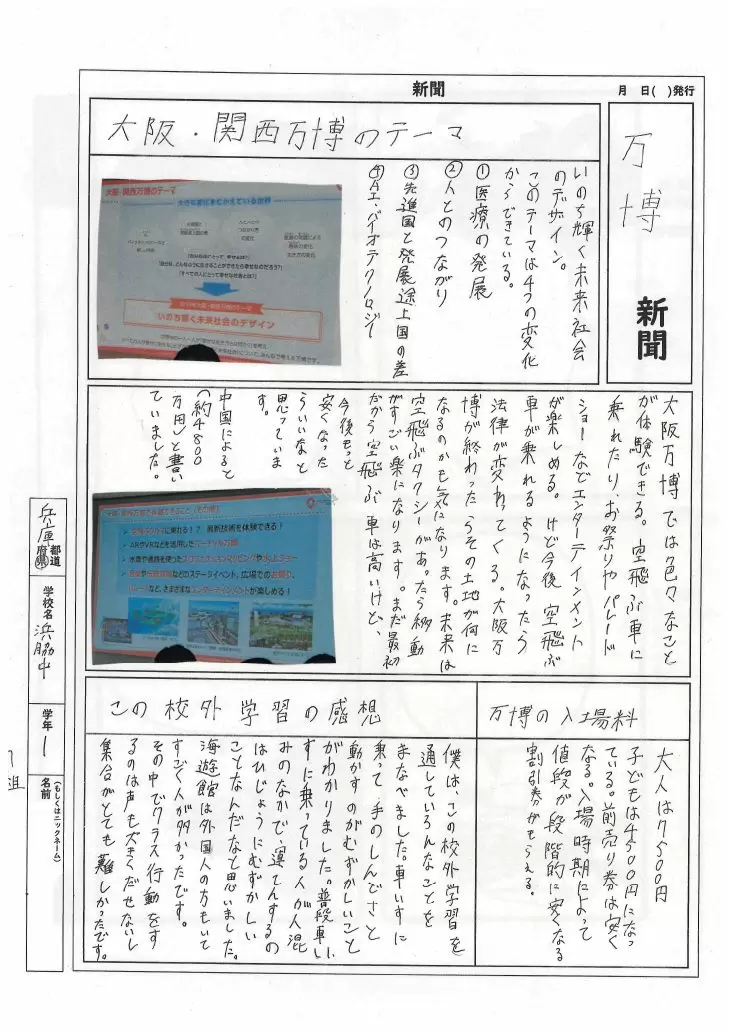 新聞
月 日( )発行
万博
新聞
大阪・関西万博のテーマ
いのち輝く未来社会
のデザイン。
このテーマは4つの変化
からできている。
①医療の発展
②人とのつながり
③先進国と発展途上国の差
④AI・バイオテクノロジー
大阪・関西万博のテーマ
いのち輝く未来社会のデザイン
大阪万博では色々なこと
が体験できる。空飛ぶ車に
乗れたり、お祭りやパレード
ショーなどエンターテインメント
が楽しめる。けど今後空飛ぶ
車が乗れるようになったら
法律が変わってくる。大阪万
博が終わったらその土地が何に
なるのかも気になります。未来は
空飛ぶタクシーがあったら移動
がすごい楽になります。まだ最初
だから空飛ぶ車は高いけど、
今後もっと
安くなった
らいいなと
思っていま
す。
中国によると
(約4800
万円)と書い
ていました。
万博の入場料
大人は7500円
子どもは4500円になっ
ている。前売り券は安く
なる。入場時期によって
値段が段階的に安くなる
割引券がもらえる。
この校外学習の感想
僕は、この校外学習を
通していろんなことを
まなべました。車いすに
乗って手のしんどさと
動かすのがむずかしいこと
がわかりました。普段車い
すに乗っている人が人混
みのなかで、運てんするの
はひじょうにむずかしい
ことなんだなと思いました。
海遊館は外国人の方もいて
すごく人が多かったです。
その中でクラス行動をす
るのは声も大きくだせないし
集合がとても難しかったです。
兵庫
都道
府県
学校名
浜脇中
学年
1
名前
(もしくはニックネーム)
組